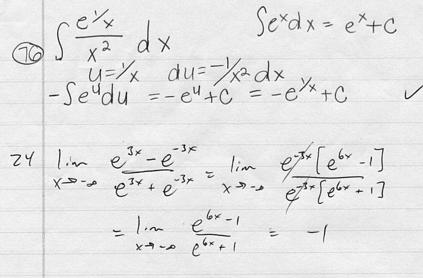 76 ∫ e^(1/x) / x² dx    ∫e^x dx = e^x + C
u = 1/x    du = -1/x² dx
-∫e^u du = -e^u + C = -e^(1/x) + C ✓
24 lim x→-∞ (e^(3x) - e^(-3x)) / (e^(3x) + e^(-3x)) = lim x→-∞ e^(-3x)[e^(6x) - 1] / e^(-3x)[e^(6x) + 1]
= lim x→-∞ (e^(6x) - 1) / (e^(6x) + 1) = -1